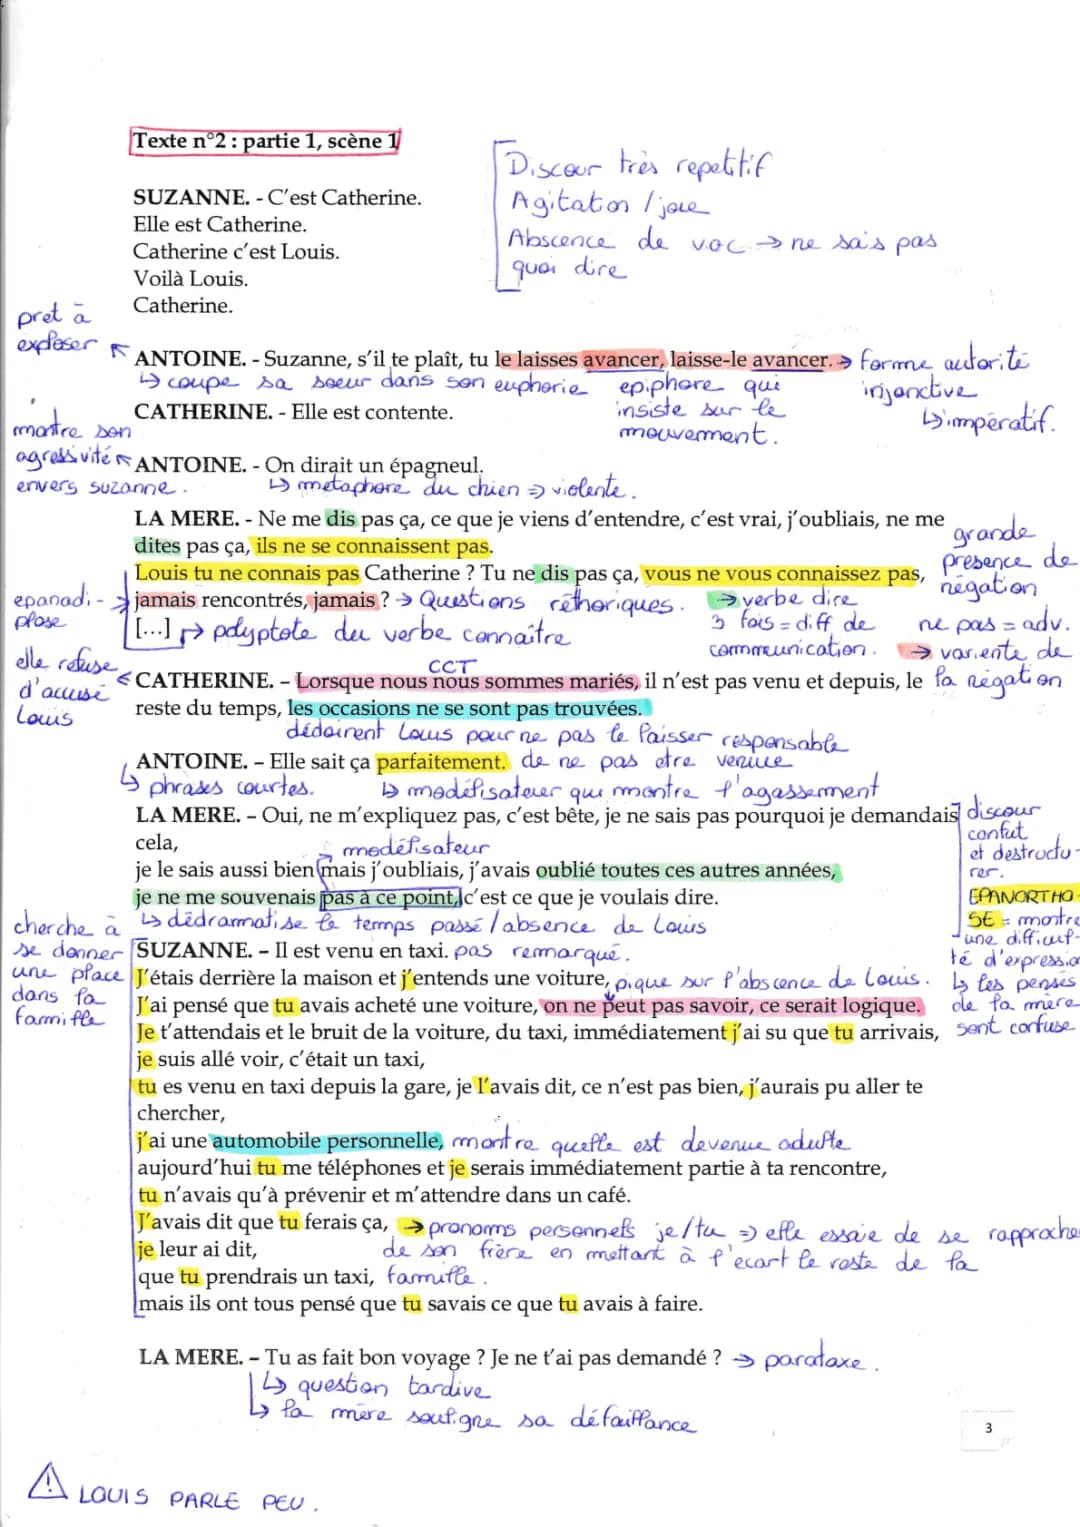 Texte n°2 : partie 1, scène 1
Discour très repetitif
Agitation / joie
Abscence de voc → ne sais pas
quoi dire
SUZANNE. - C'est Catherine.
Elle est Catherine.
Catherine c'est Louis.
Voilà Louis.
Catherine.
pret à
exploser
ANTOINE. - Suzanne, s'il te plaît, tu le laisses avancer, laisse-le avancer. → forme autorité
↳ coupe sa soeur dans son euphorie
epiphore qui
insiste sur le
mouvement.
injonctive
↳ impératif.
CATHERINE. - Elle est contente.
montre son
agressivité
envers suzanne.
ANTOINE. - On dirait un épagneul.
↳ métaphore du chien ⇒ violente.
LA MERE. - Ne me dis pas ça, ce que je viens d'entendre, c'est vrai, j'oubliais, ne me
dites pas ça, ils ne se connaissent pas.
Louis tu ne connais pas Catherine ? Tu ne dis pas ça, vous ne vous connaissez pas,
jamais rencontrés, jamais ? → Questions réthoriques.
[...] → polyptote du verbe connaître
epanadi-
plose
→ verbe dire
3 fois = diff de
communication.
grande
presence de
négation
ne pas = adv.
→ variente de
la négation
elle refuse
d'accusé
Louis
CCT
CATHERINE. – Lorsque nous nous sommes mariés, il n'est pas venu et depuis, le
reste du temps, les occasions ne se sont pas trouvées.
dédoirent Louis pour ne pas le laisser responsable
de ne pas etre venue
ANTOINE. – Elle sait ça parfaitement.
↳ phrases courtes.
↳ modélisateur qui montre l'agassement
LA MERE. – Oui, ne m'expliquez pas, c'est bête, je ne sais pas pourquoi je demandais
cela,
modélisateur
je le sais aussi bien mais j'oubliais, j'avais oublié toutes ces autres années,
je ne me souvenais pas à ce point, c'est ce que je voulais dire.
↳ dédramatise le temps passé / absence de Louis
discour
confut
et destructu-
rer.
EPANORTHO-
SE = montre
une difficul-
té d'expression
↳ les penses
de la mère
sont confuse
cherche à
se donner
une place
dans la
famille
SUZANNE. – Il est venu en taxi. pas remarqué.
J'étais derrière la maison et j'entends une voiture, pique sur l'abscence de Louis.
J'ai pensé que tu avais acheté une voiture, on ne peut pas savoir, ce serait logique.
Je t'attendais et le bruit de la voiture, du taxi, immédiatement j'ai su que tu arrivais,
je suis allé voir, c'était un taxi,
tu es venu en taxi depuis la gare, je l'avais dit, ce n'est pas bien, j'aurais pu aller te
chercher,
j'ai une automobile personnelle, montre quelle est devenue adulte
aujourd'hui tu me téléphones et je serais immédiatement partie à ta rencontre,
tu n'avais qu'à prévenir et m'attendre dans un café.
J'avais dit que tu ferais ça, → pronoms personnels je/tu ⇒ elle essaie de se rapprocher
je leur ai dit, de son frère en mettant à l'ecart le reste de la
que tu prendrais un taxi, famille.
mais ils ont tous pensé que tu savais ce que tu avais à faire.
LA MERE. – Tu as fait bon voyage ? Je ne t'ai pas demandé ? → parataxe.
↳ question tardive
↳ la mère souligne sa défaillance
3
⚠ LOUIS PARLE PEU.